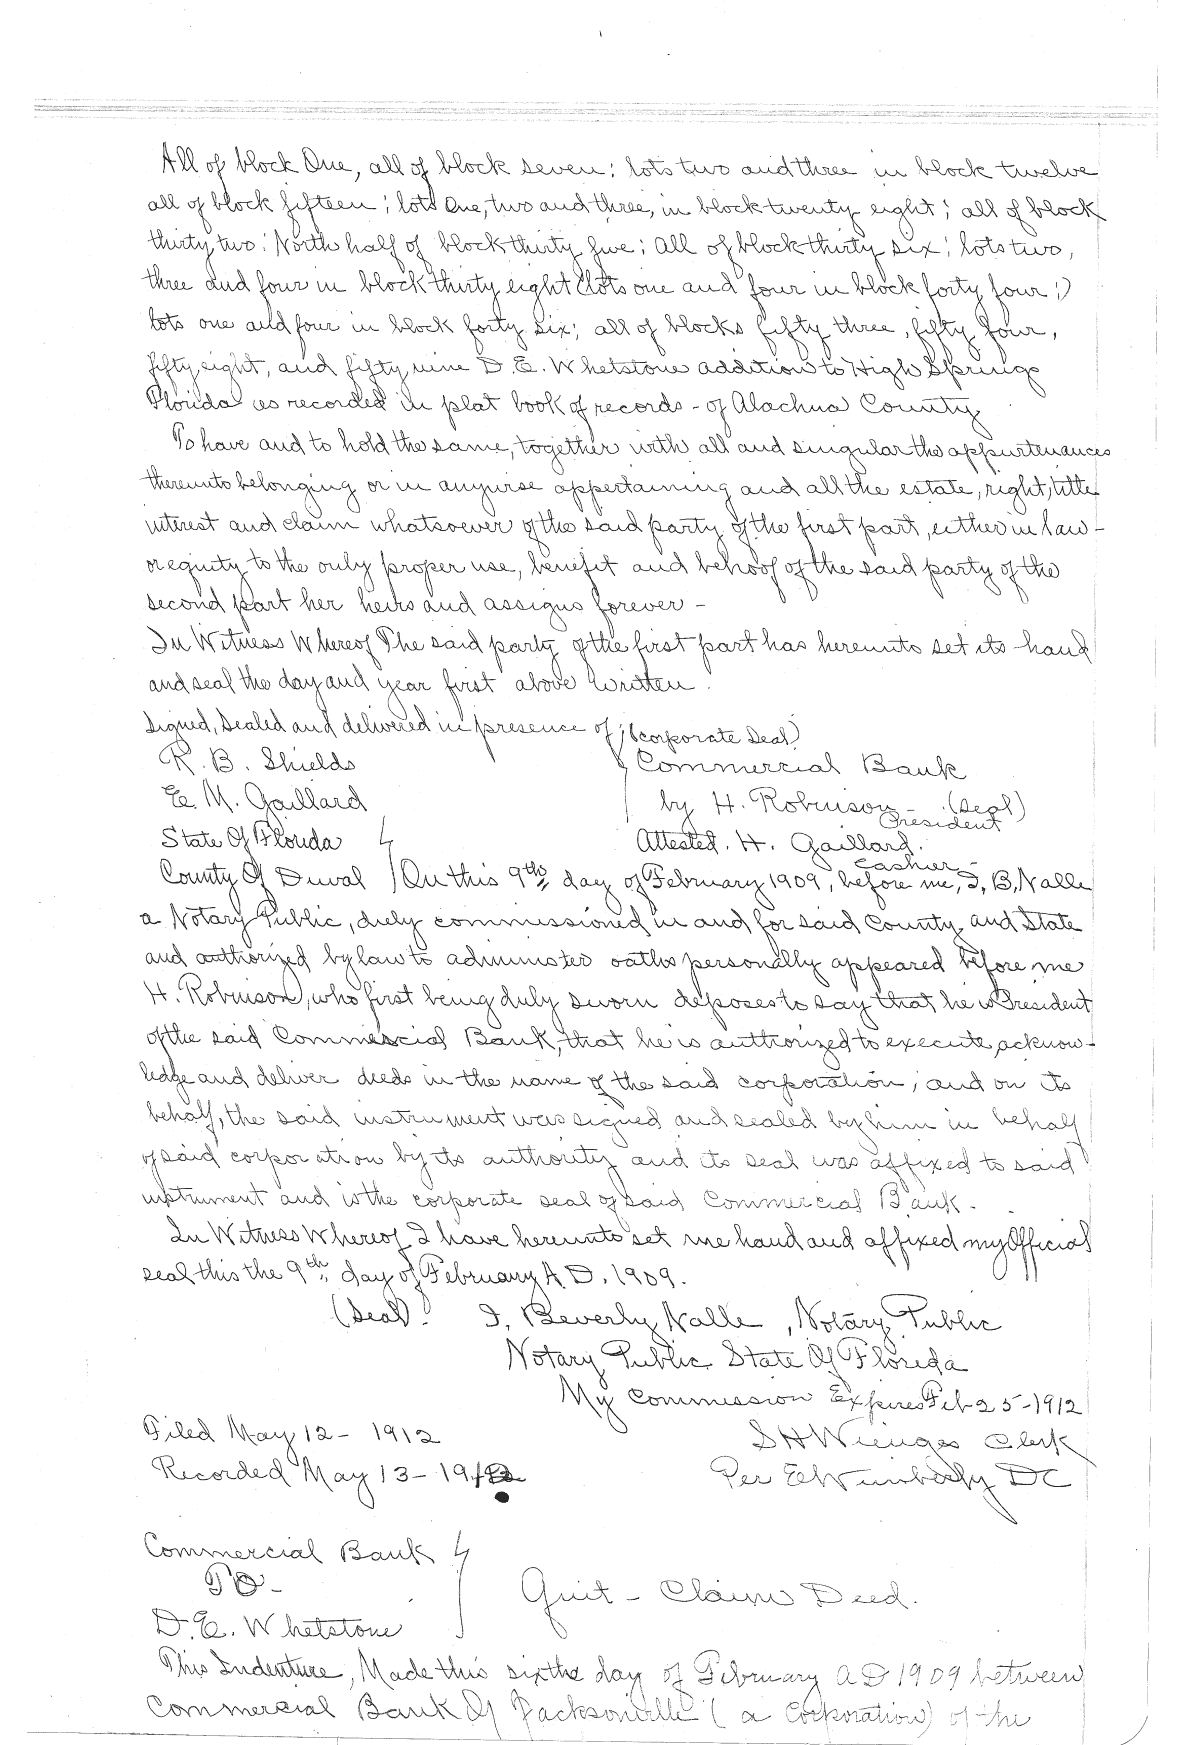 All of block One, all of block seven; lots two and three in block twelve
all of block fifteen; lots One, two and three, in block twenty eight; all of block
thirty two; North half of block thirty five; All of block thirty six; lots two,
three and four in block thirty eight (lots one and four in block forty four;)
lots one and four in block forty six; all of blocks fifty three, fifty four,
fifty eight, and fifty nine D. E. Whetstone addition to High Springs
Florida as recorded in plat book of records - of Alachua County
To have and to hold the same, together with all and singular the appurtenances
thereunto belonging or in anywise appertaining and all the estate, right, title
interest and claim whatsoever of the said party of the first part, either in law -
or equity to the only proper use, benefit and behoof of the said party of the
second part her heirs and assigns forever -
In Witness Whereof The said party of the first part has hereunto set its hand
and seal the day and year first above Written.
Signed, Sealed and delivered in presence of; (corporate Seal)
R. B. Shields Commercial Bank
E. M. Gaillard by H. Robinson - (Seal)
President
State Of Florida Attested. H. Gaillard.
Cashier -
County Of Duval On this 9th day of February 1909, before me, I, B, Nalle
a Notary Public, duly commissioned in and for said County and State
and authorized by law to administer oaths personally appeared before me
H. Robinson, who first being duly sworn deposes to say that he is President
of the said Commercial Bank, that he is authorized to execute, acknow-
ledge and deliver deeds in the name of the said corporation; and on its
behalf, the said instrument was signed and sealed by him in behalf
of said corporation by its authority and its seal was affixed to said
instrument and is the corporate seal of said Commercial Bank.
In Witness Whereof I have hereunto set me hand and affixed my Official
seal this the 9th day of February A. D. 1909.
(Seal) I, Beverly Nalle, Notary Public
Notary Public State Of Florida
My commission Expires Feb 25-1912
Filed May 12 - 1912 S H Wienges Clerk
Recorded May 13 - 1912 Per E Wimberly DC
Commercial Bank
TO - Quit - Claim Deed.
D. E. Whetstone
This Indenture, Made this sixth day of February A D 1909 between
Commercial Bank Of Jacksonville (a Corporation) of the